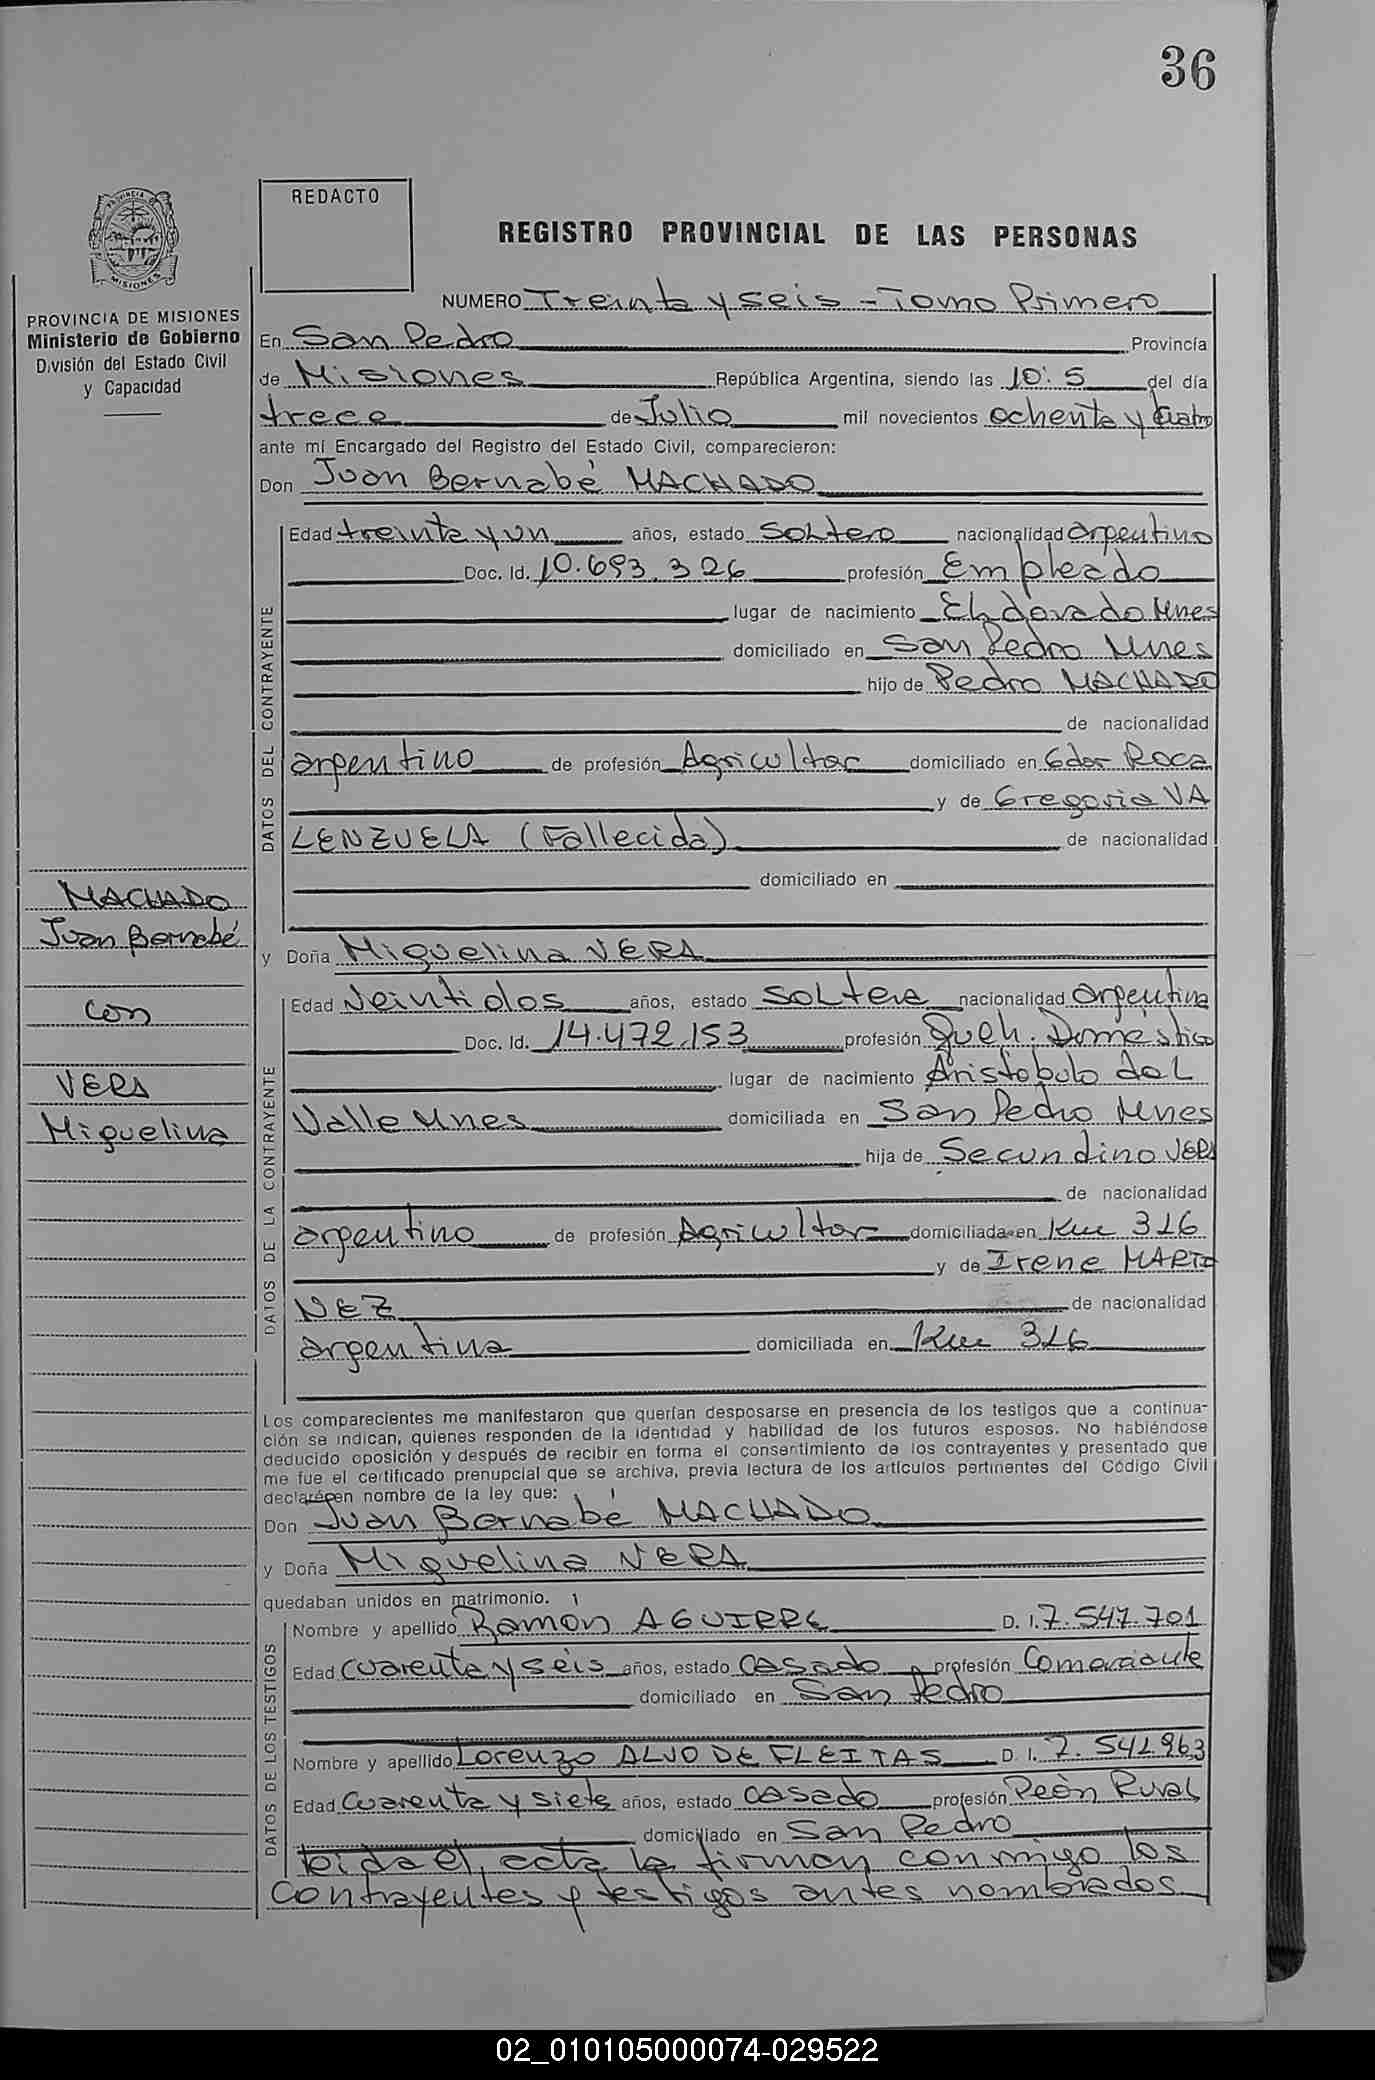 36
REDACTO
REGISTRO PROVINCIAL DE LAS PERSONAS
PROVINCIA DE MISIONES
Ministerio de Gobierno
División del Estado Civil
y Capacidad
NUMERO Treinta y seis - Tomo Primero
En San Pedro Provincia
de Misiones República Argentina, siendo las 10:5 del día
trece de Julio mil novecientos ochenta y cuatro
ante mi Encargado del Registro del Estado Civil, comparecieron:
Don Juan Bernabé MACHADO
DATOS DEL CONTRAYENTE
Edad treinta y un años, estado soltero nacionalidad argentino
Doc. Id. 10.693.326 profesión Empleado
lugar de nacimiento Eldorado Mnes
domiciliado en San Pedro Mnes
hijo de Pedro MACHADO
de nacionalidad
argentino de profesión Agricultor domiciliado en Gdor Roca
y de Gregoria VA
LENZUELA (Fallecida) de nacionalidad
domiciliado en
MACHADO
Juan Bernabé
con
VERA
Miguelina
y Doña Miguelina VERA
DATOS DE LA CONTRAYENTE
Edad Veintidos años, estado soltera nacionalidad argentina
Doc. Id. 14.472.153 profesión Queh. Doméstico
lugar de nacimiento Aristóbulo del
Valle Mnes domiciliada en San Pedro Mnes
hija de Secundino VERA
de nacionalidad
argentino de profesión Agricultor domiciliada en Km 316
y de Irene MARTI
NEZ de nacionalidad
argentina domiciliada en Km 316
Los comparecientes me manifestaron que querían desposarse en presencia de los testigos que a continua-
ción se indican, quienes responden de la identidad y habilidad de los futuros esposos. No habiéndose
deducido oposición y después de recibir en forma el consentimiento de los contrayentes y presentado que
me fue el certificado prenupcial que se archiva, previa lectura de los artículos pertinentes del Código Civil
declaré en nombre de la ley que:
Don Juan Bernabé MACHADO
y Doña Miguelina VERA
quedaban unidos en matrimonio.
DATOS DE LOS TESTIGOS
Nombre y apellido Ramón AGUIRRE D. I. 7.547.701
Edad cuarenta y séis años, estado casado profesión Comerciante
domiciliado en San Pedro
Nombre y apellido Lorenzo ALVO DE FLEITAS D. I. 7.541.963
Edad cuarenta y siete años, estado casado profesión Peón Rural
domiciliado en San Pedro
leida el acta la firman conmigo los
contrayentes y testigos antes nombrados
02_010105000074-029522